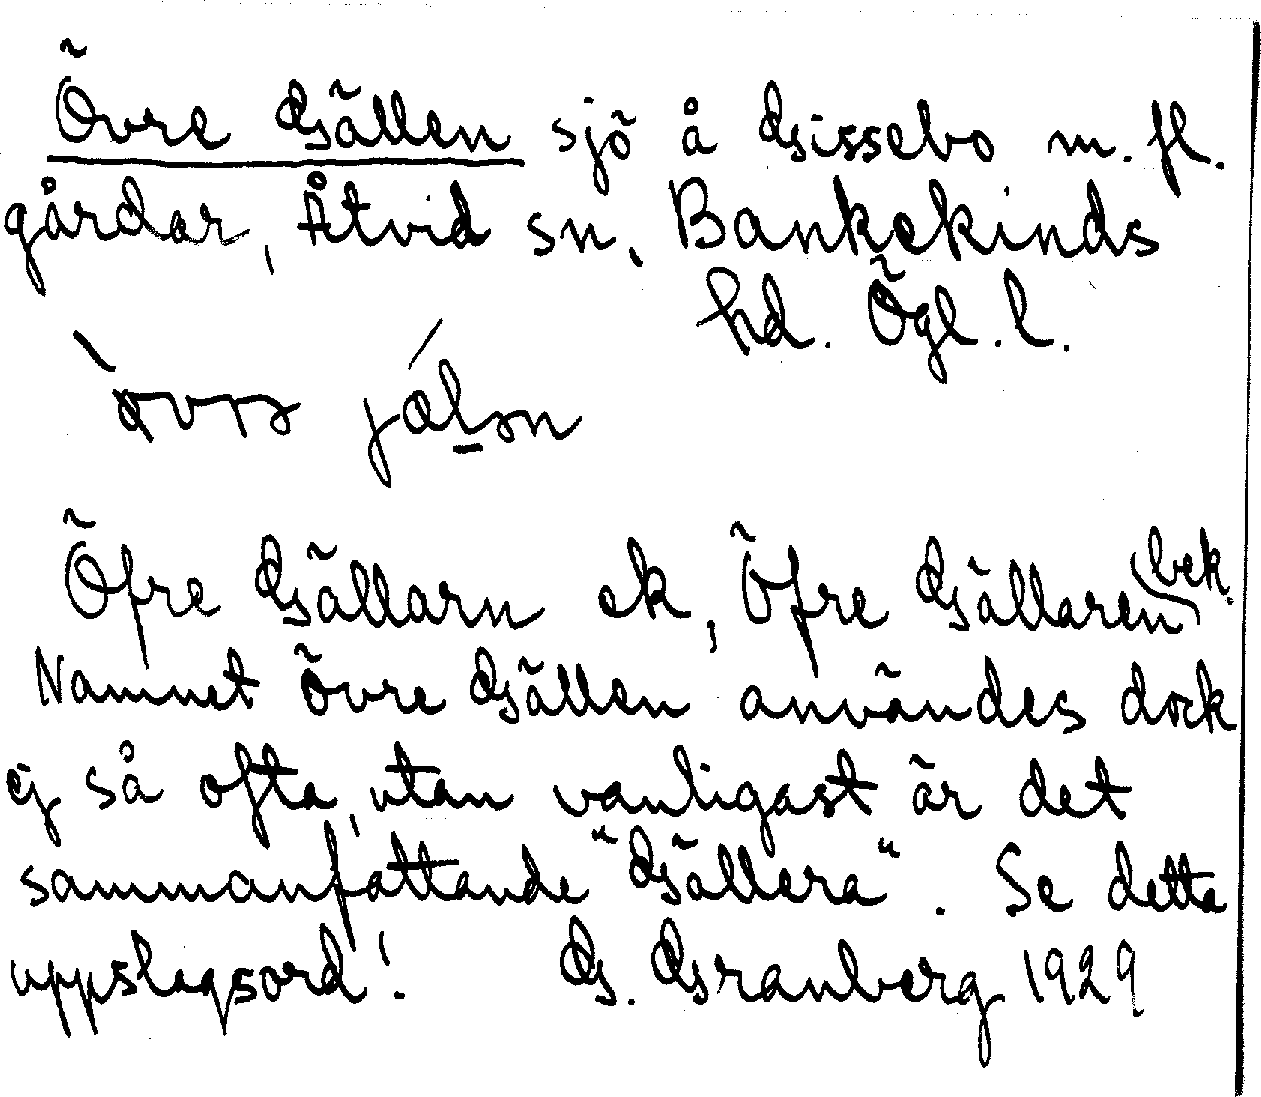 Övre Gällen sjö å Gissebo m. fl.
gårdar, Åtvid sn, Bankekinds
hd. Ögl. l.
Öfre Gällarn ek, Öfre Gällaren bek.
Namnet Övre Gällen användes dock
ej så ofta, utan vanligast är det
sammanfattande "Gällera". Se detta
uppslagsord! G. Granberg 1929